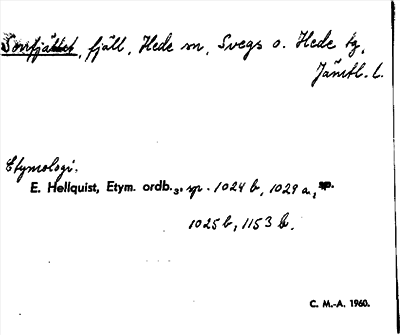 Sonfjället, fjäll, Hede sn, Svegs o. Hede tg,
Jämtl. l.
Etymologi.
E. Hellquist, Etym. ordb.3, sp. 1024 b, 1029 a, sp.
1025 b, 1153 b.
C. M.-A. 1960.